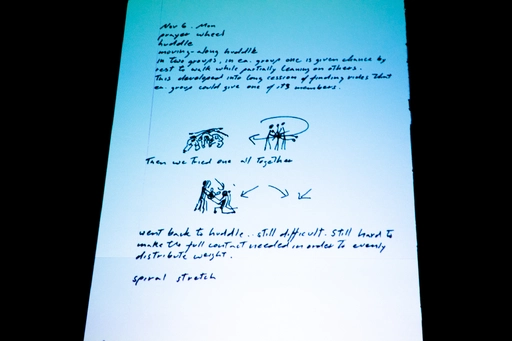 Nov 6. Mon
prayer wheel
huddle
moving-along huddle
in two groups, in ea. group one is given chance by
rest to walk while partially leaning on others.
This developed into long session of finding rides that
ea. group could give one of its members.
Then we tried one all together
went back to huddle.. still difficult. Still hard to
make the full contact needed in order to evenly
distribute weight.
spiral stretch